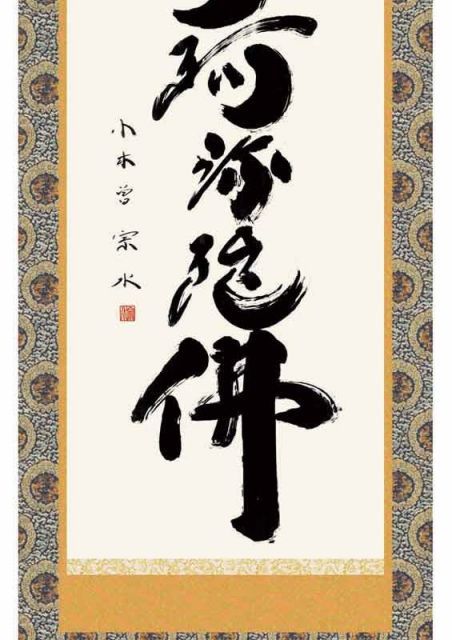 阿弥陀佛
小木曽宗水